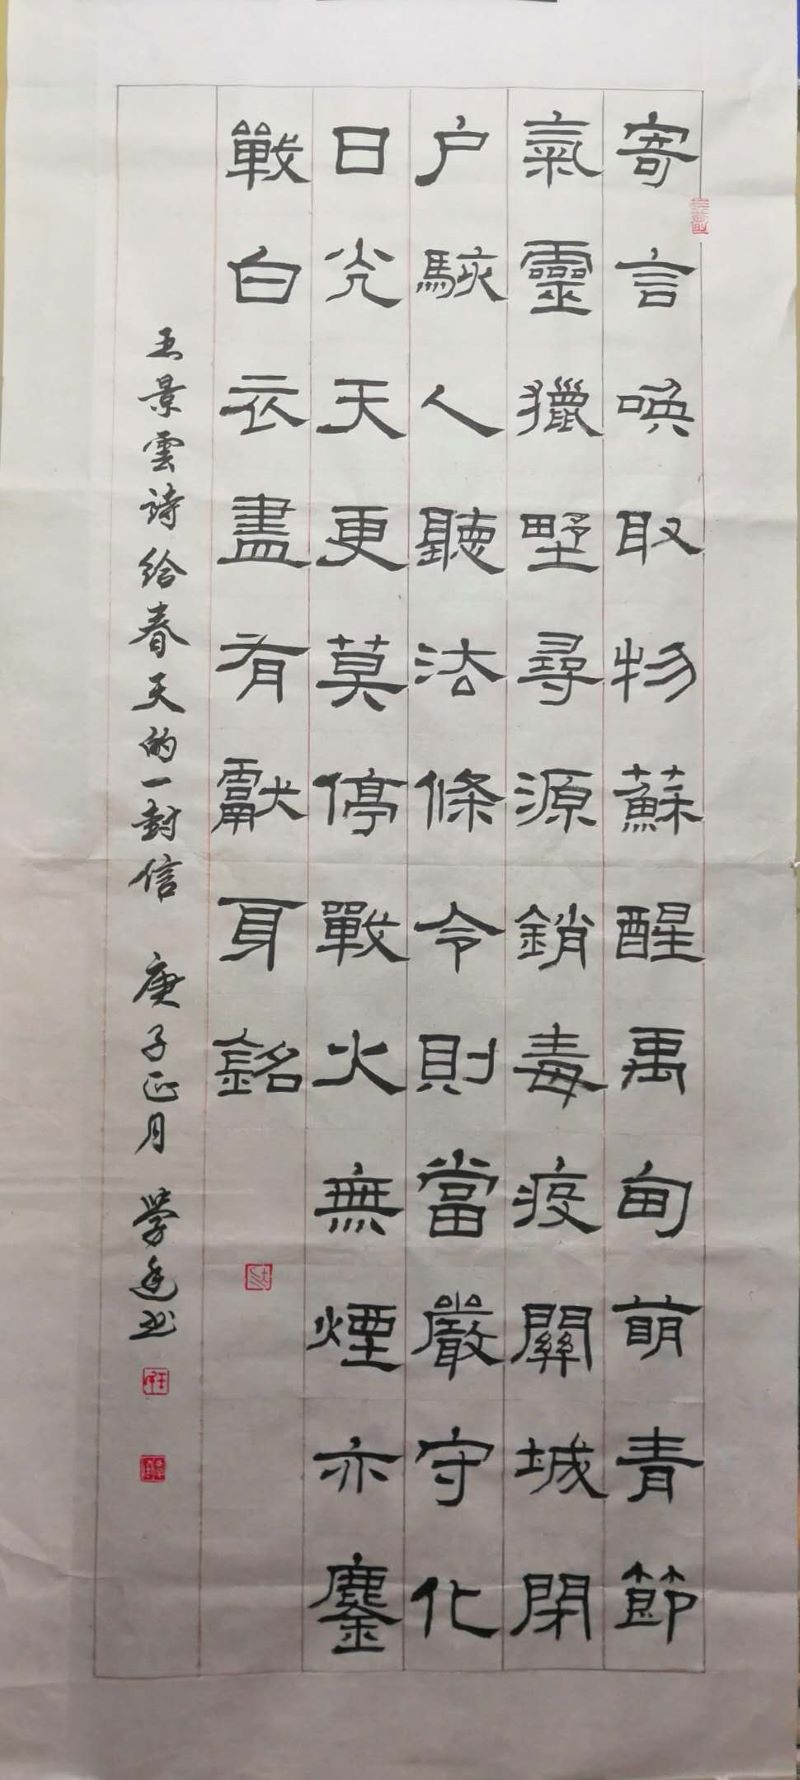 寄言唤取物蘇醒禹甸萌青節
氣靈獵野尋源銷毒疫關城閉
户駭人聽法條令則當嚴守化
日光天更莫停戰火無煙亦鏖
戰白衣盡有獻身銘
王景雲詩给春天的一封信 庚子正月 學廷书